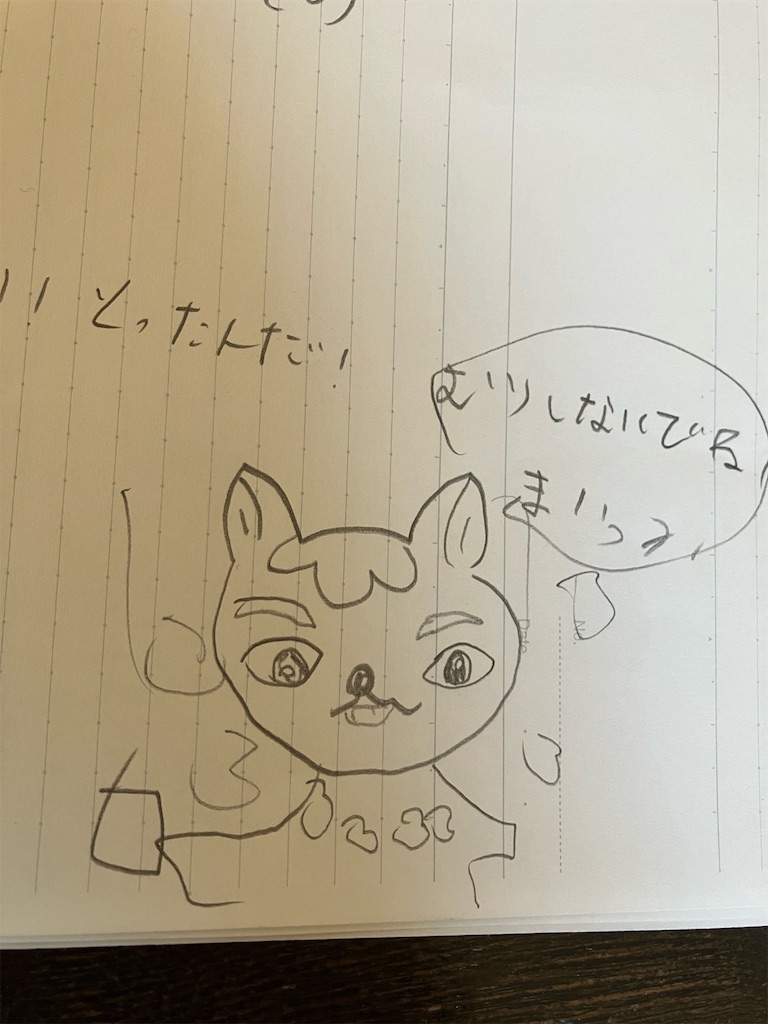 !! とったんだ!
むりしないでる
まいっ
Date
No.